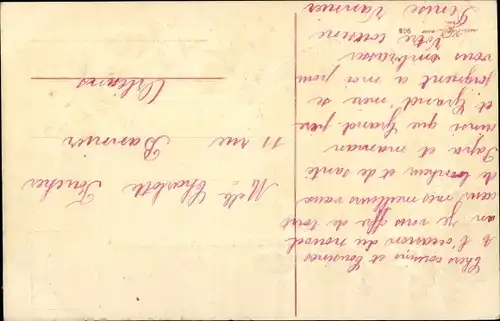 Chers cousins et Cousines
A l'occasion du nouvel
an je vous offre de tout
cœur mes meilleurs vœux
de bonheur et de santé
Papa et maman
ainsi que Grand père
et Grand'mère se
joignent à moi pour
vous embrasser
Votre cousine
Denise Vannier
908
Melle Charlotte
11 rue Bannier
Orléans